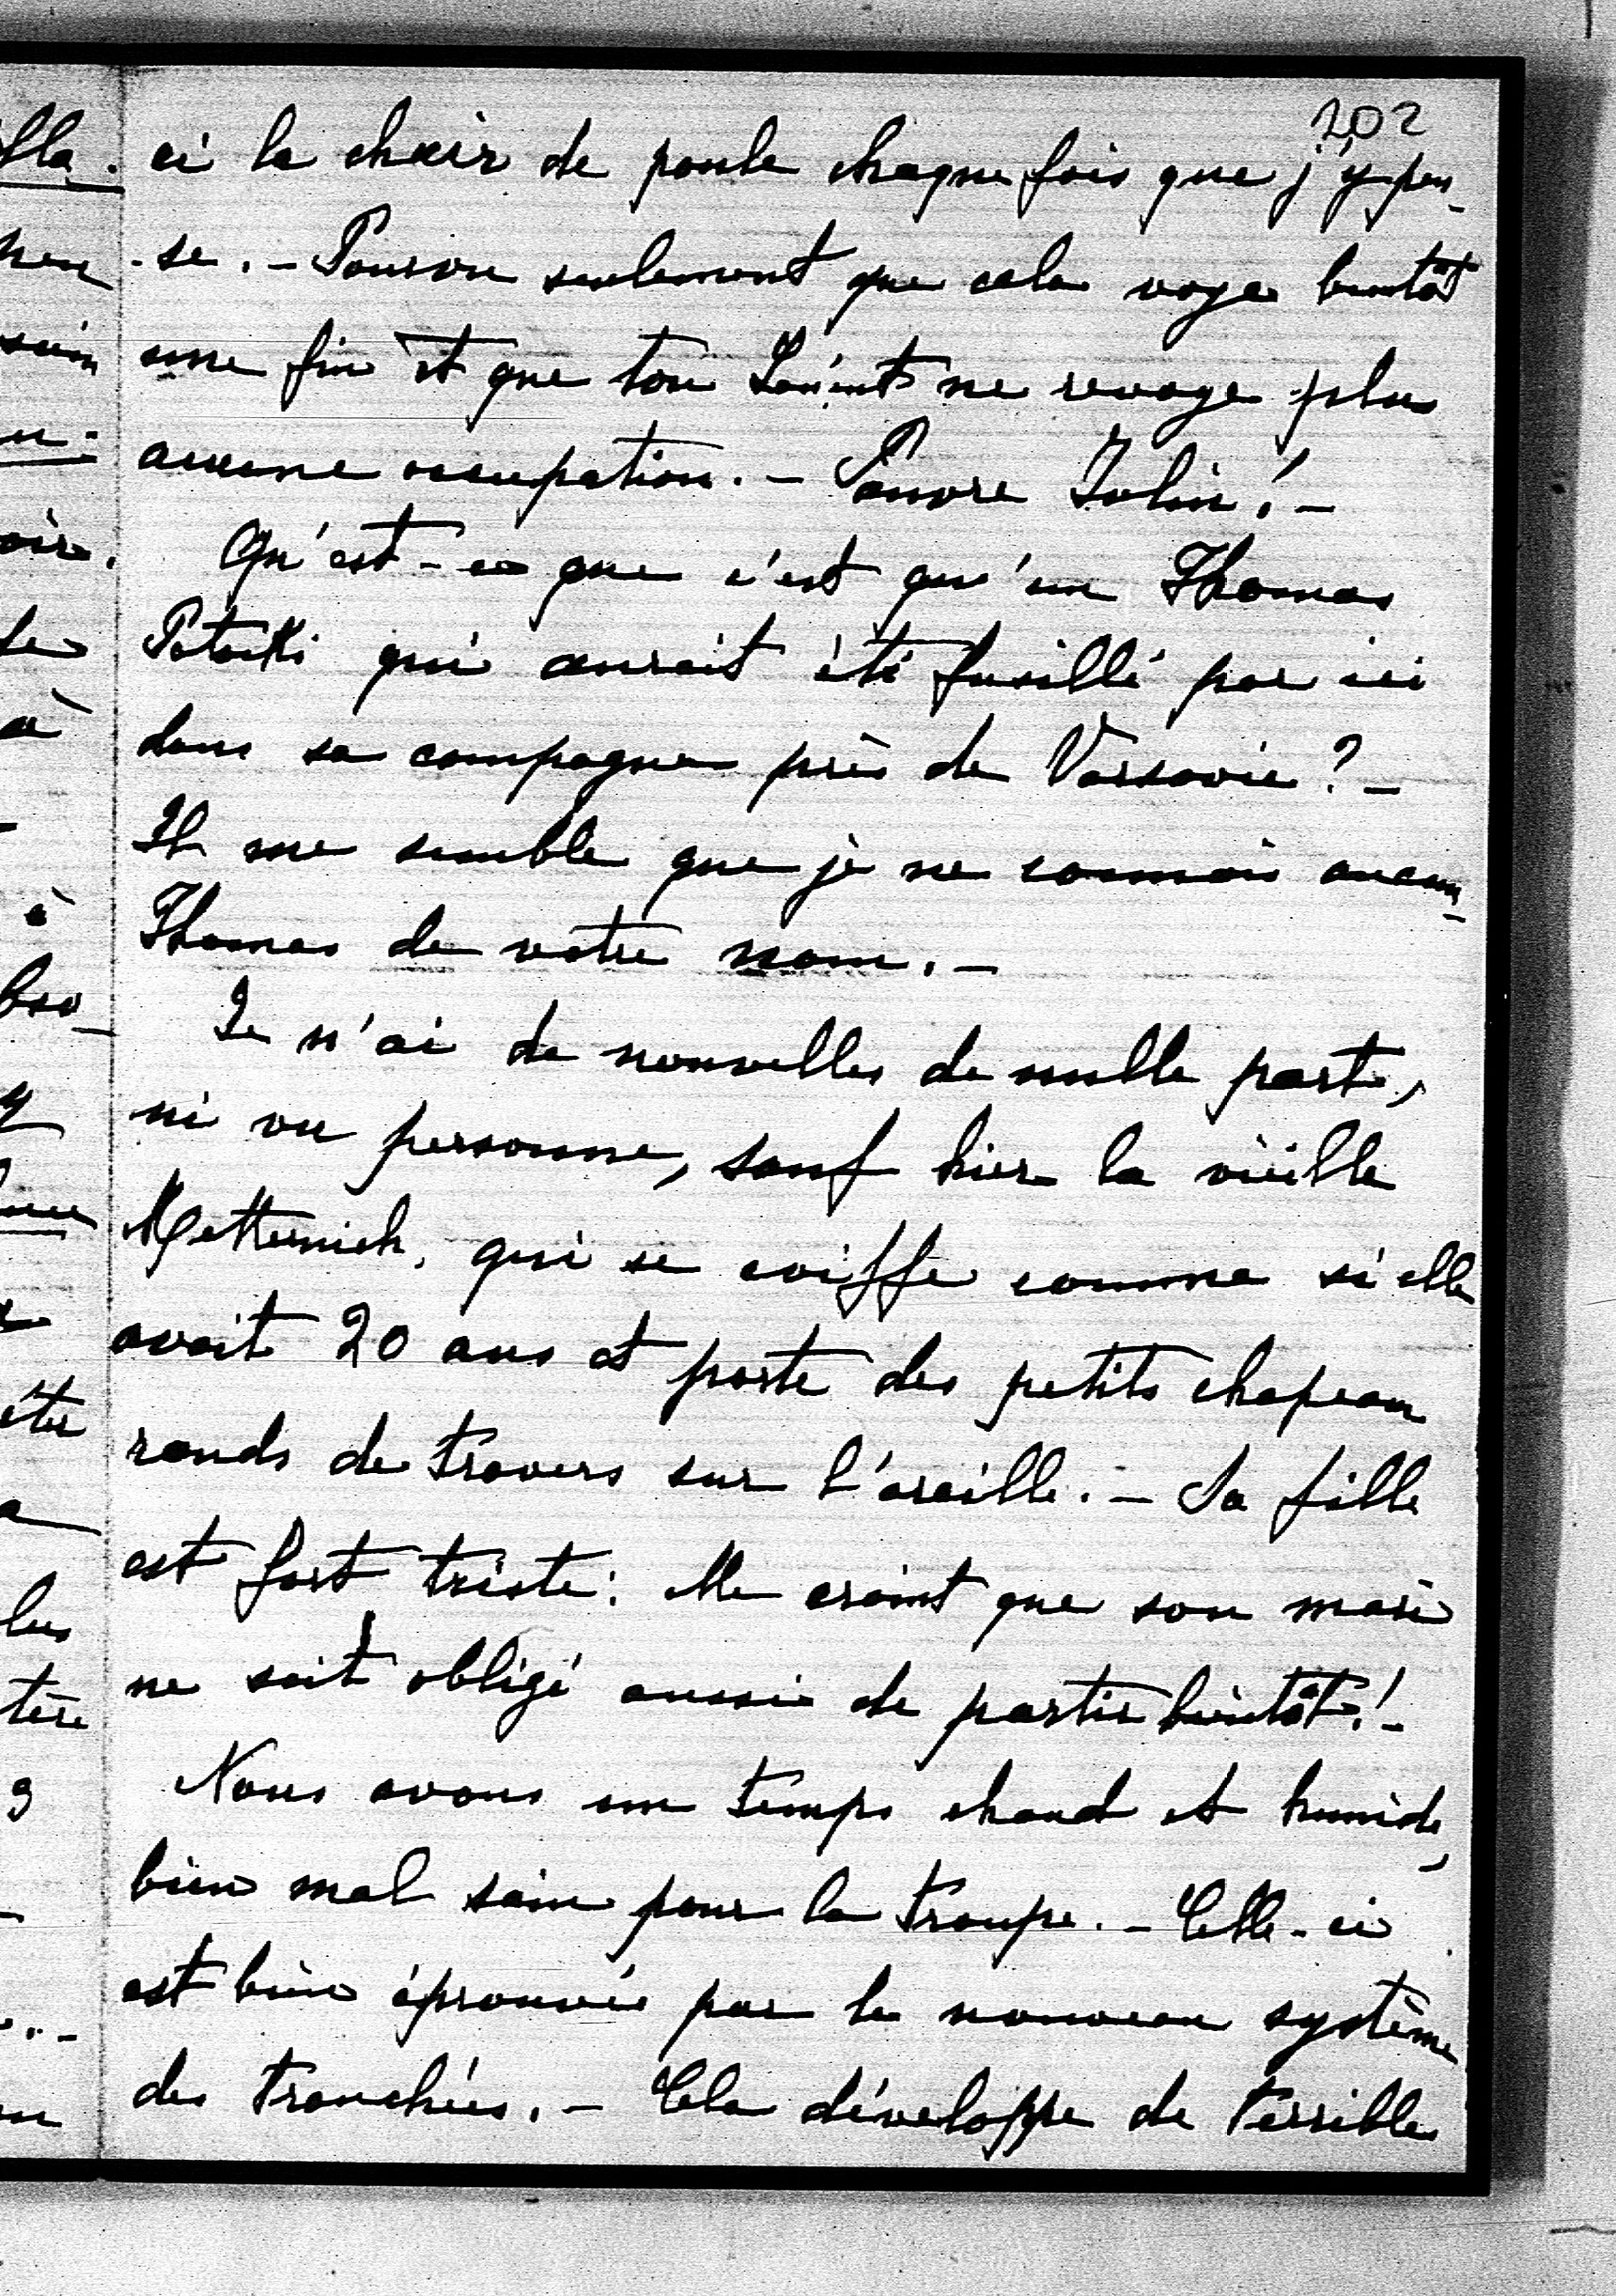 202
ai la chair de poule chaque fois que j'y pen-
-se. - Pourvu seulement que cela voye bientôt
une fin et que ton Łańcut ne revoye plus
aucune occupation. - Pauvre Julin! -
Qu'est-ce que c'est qu'un Thomas
Potocki qui aurait été fusillé par ici
dans sa campagne près de Varsovie? -
Il me semble que je ne connais aucun
Thomas de votre nom. -
Je n'ai de nouvelles de nulle part,
ni vu personne, sauf hier la vieille
Metternich, qui se coiffe comme si elle
avait 20 ans et porte des petits chapeau
ronds de travers sur l'oreille. - Sa fille
est fort triste: elle craint que son mari
ne soit obligé aussi de partir bientôt! -
Nous avons un temps chaud et humide,
bien mal sain pour la troupe. - Celle-ci
est bien éprouvée par le nouveau système
des tranchées. - Cela développe de terribles